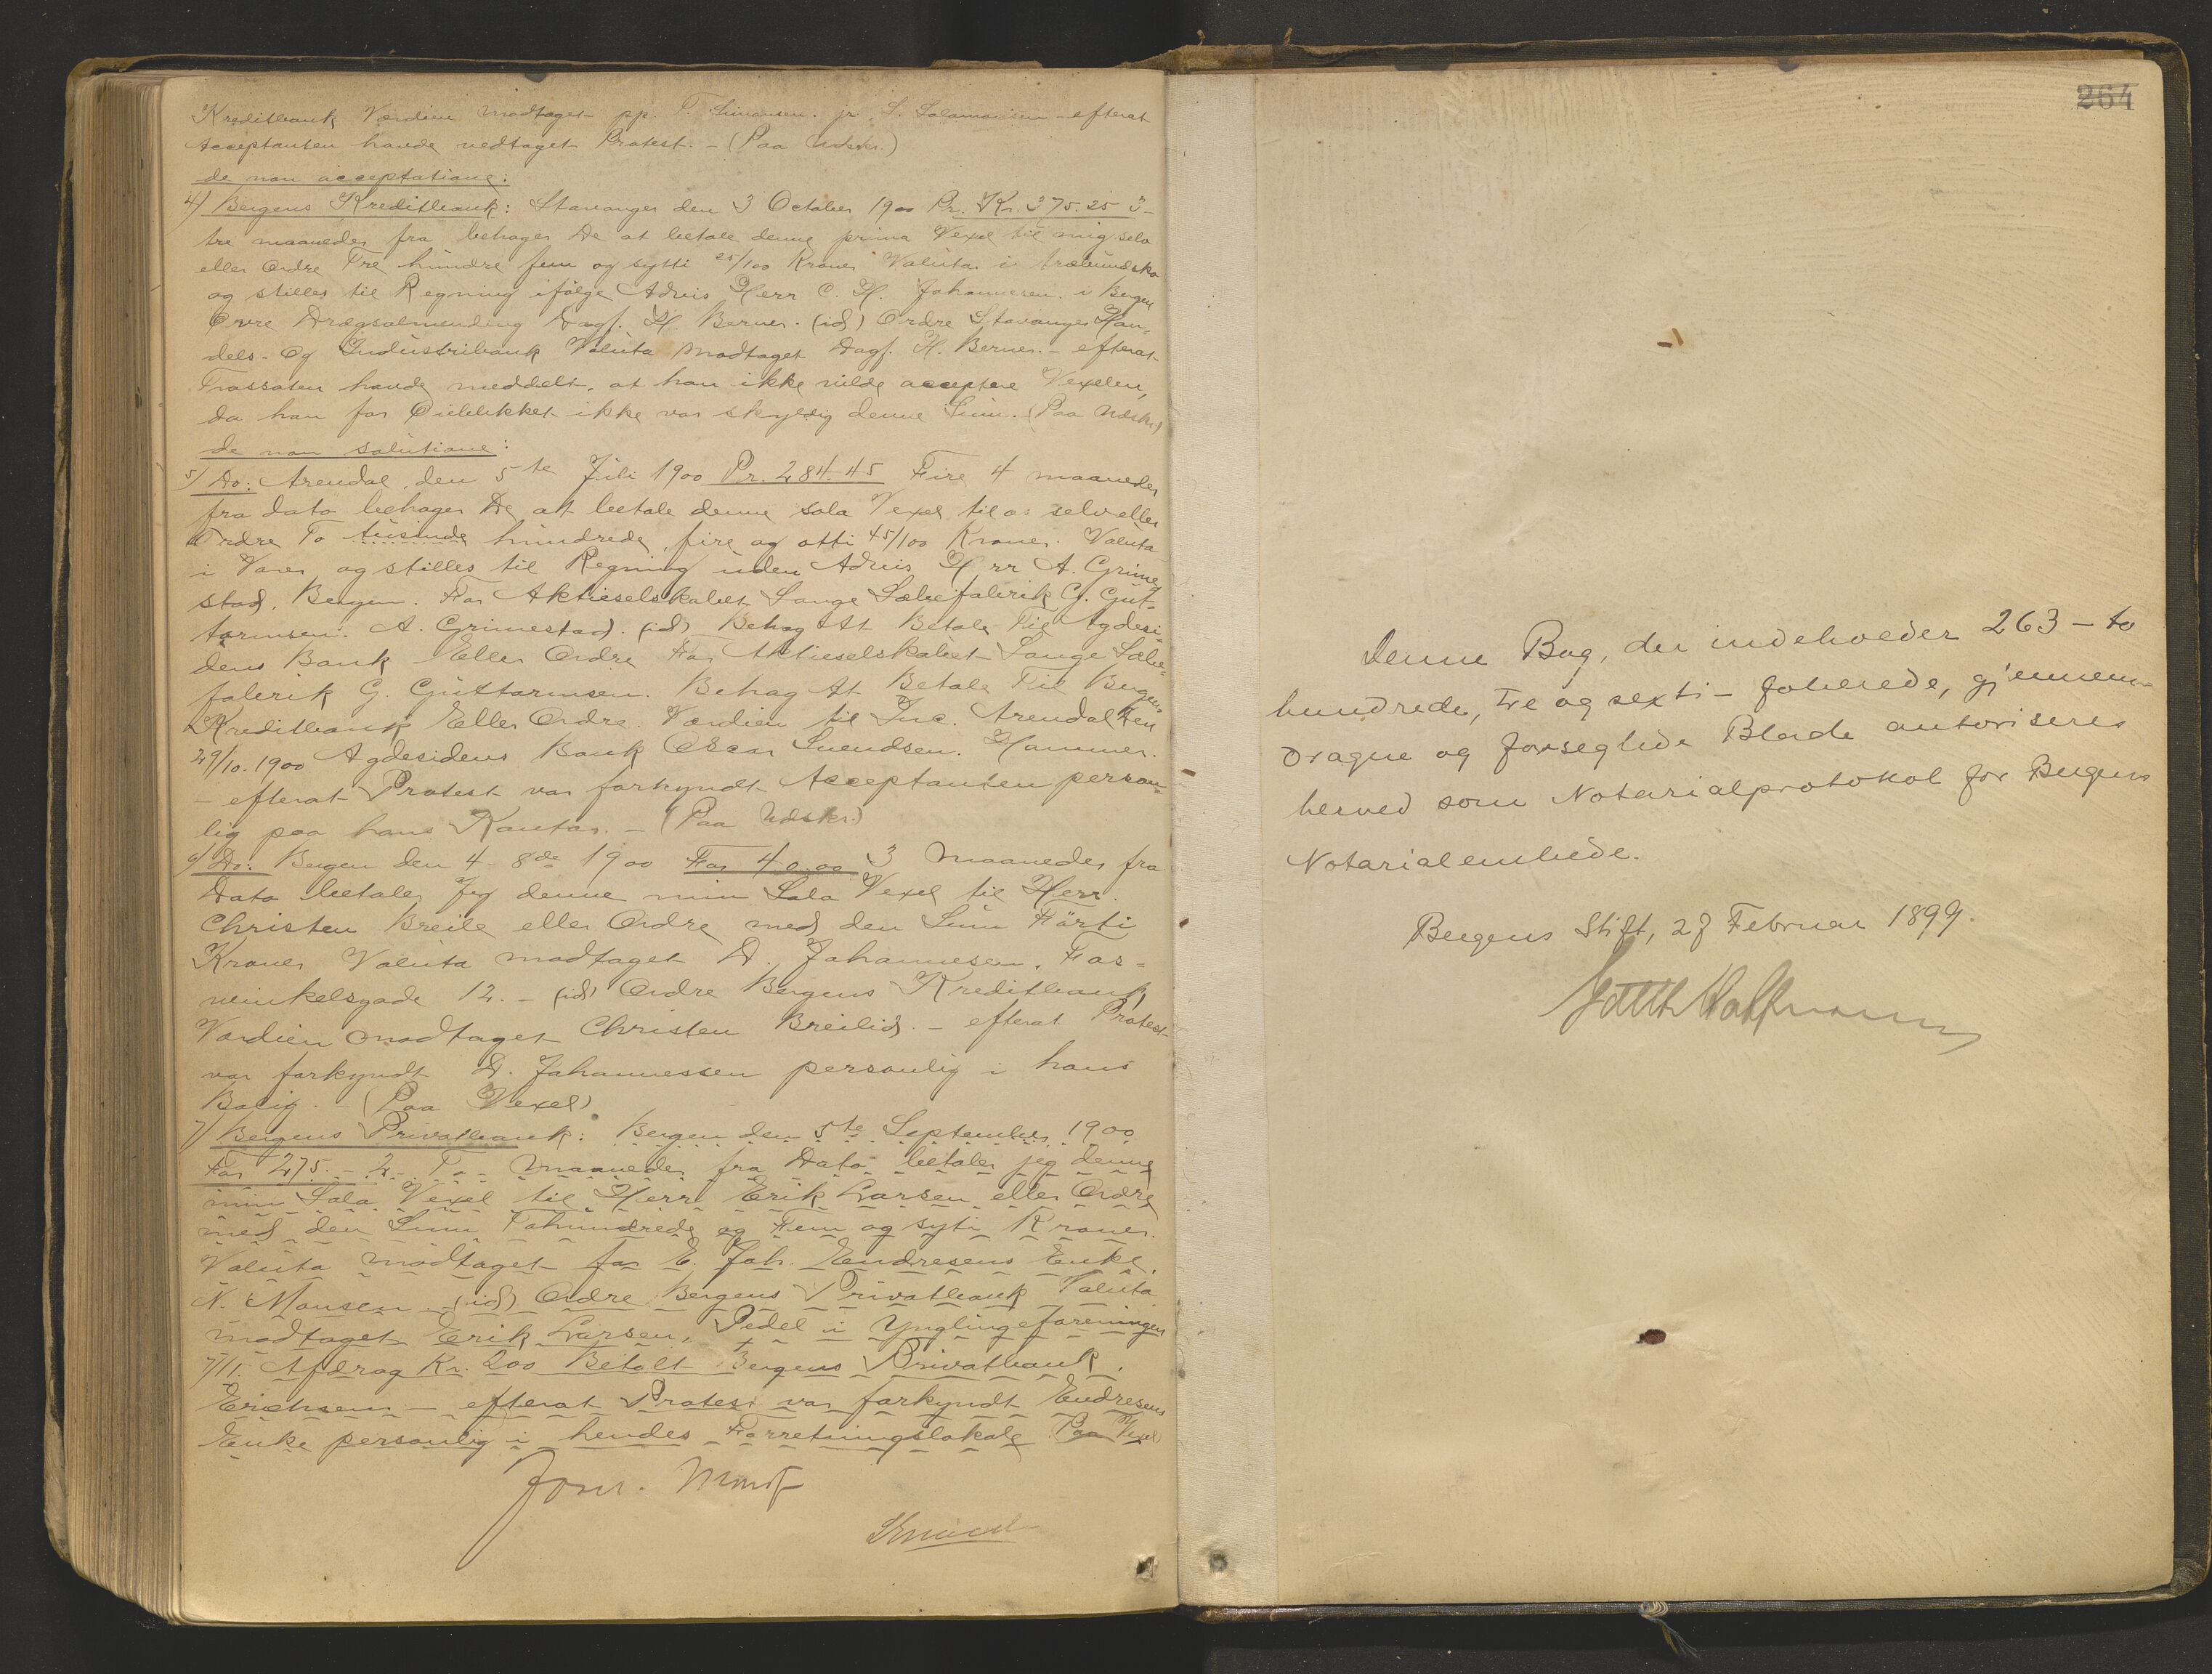 Kreditbank Værdien modtaget pp. T. Simonsen. jr. S. Salamonsen - efterat
Acceptanten havde vedtaget Protest. - (Paa Udskr.)
de non acceptatione:
4) Bergens Kreditbank: Stavanger den 3 October 1900 Pr. Kr. 375.25 3-
tre maaneder fra behager De at betale denne prima Vexel til mig selv
eller Ordre Tre hundre fem og sytti 25/100 Kroner Valuta i
og stilles til Regning ifølge Advis Herr C. H. Johannesen. i Bergen
Øvre Dragsalmending Dagf. H. Berner. (id) Ordre Stavanger Han-
dels- og Industribank Valuta modtaget Dagf. H. Berner. - efterat
Trassaten havde meddelt, at han ikke vilde acceptere Vexelen,
da han for Øieblikket ikke var skyldig denne Sum. (Paa Udskr)
de non solutione:
5) Do: Arendal, den 5te Juli 1900 Pr. 284.45 Fire 4 maaneder
fra dato behager De at betale denne sola Vexel til os selv eller
Ordre To tusinde hundrede, fire og otti 45/100 Kroner. Valuta
i Varer og stilles til Regning uden Advis Herr A. Grime-
stad. Bergen. For Aktieselskabet Lange Sæbefabrik G. Gut-
tormsen. A. Grimestad. (id) Behag At Betale Til Agdesi-
dens Bank Eller Ordre For Aktieselskabet Lange Sæbe-
fabrik G. Guttormsen. Behag At Betale Til Bergens
Kreditbank Eller Ordre. Værdien til Inc. Arendal Den
29/10. 1900 Agdesidens Bank Oscar Svendsen. Hammer.
- efterat Protest var forkyndt Acceptanten person-
lig paa hans Kontor. - (Paa Udskr.)
6) Do: Bergen den 4- 8de 1900 For 40.00 3 maaneder fra
Dato betaler Jeg denne min Sola Vexel til Herr.
Christen Breile eller Ordre med den Sum Førti
Kroner Valuta modtaget D. Johannesen. For=
vinkelsgade 12. - (id) Ordre Bergens Kreditbank
Værdien modtaget Christen Breilid. - efterat Protest
var forkyndt D. Johannessen personlig i hans
Bolig. - (Paa Vexel)
7) Bergens Privatbank: Bergen den 5te September 1900
For 275. - 2 - To - maaneder fra Dato betaler jeg denne
min Sola Vexel til Herr Erik Larsen eller Ordre
med den Sum Tohundrede og Fem og syti Kroner.
Valuta modtaget for E. Joh. Endresens Enke.
N. Monsen (id) Ordre Bergens Privatbank Valuta
modtaget Erik Larsen, Pedel i Ynglingeforeningen
7/11. Afdrag Kr. 200 Betalt Bergens Privatbank.
Erichsen - efterat Protest var forkyndt Endresens
Enke personlig i hendes Forretningslokale (Paa Vexel)
264
Denne Bog, der indeholder 263 - to
hundrede, tre og sexti - folierede, gjennem-
dragne og forseglede Blade autoriseres
herved som Notarialprotokol for Bergens
Notarialembede.
Bergens Stift, 28 Februar 1899.